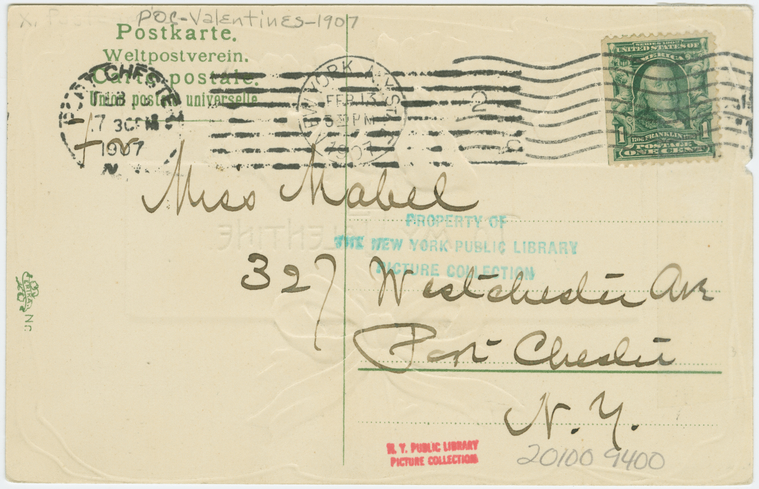 POC-Valentines-1907
Postkarte.
Weltpostverein.
Carte postale.
Union postale universelle
PORT CHESTER
7 30PM
1907
N
YORK
FEB 13
530PM
1907
SERIES 1902
UNITED STATES OF
AMERICA
1 FRANKLIN 1
POSTAGE
ONE CENT
Miss Mabel
327 Westchester Ave
Port Chester
N.Y.
PROPERTY OF
THE NEW YORK PUBLIC LIBRARY
PICTURE COLLECTION
VALENTINE
Nr.
N. Y. PUBLIC LIBRARY
PICTURE COLLECTION
20100 9400